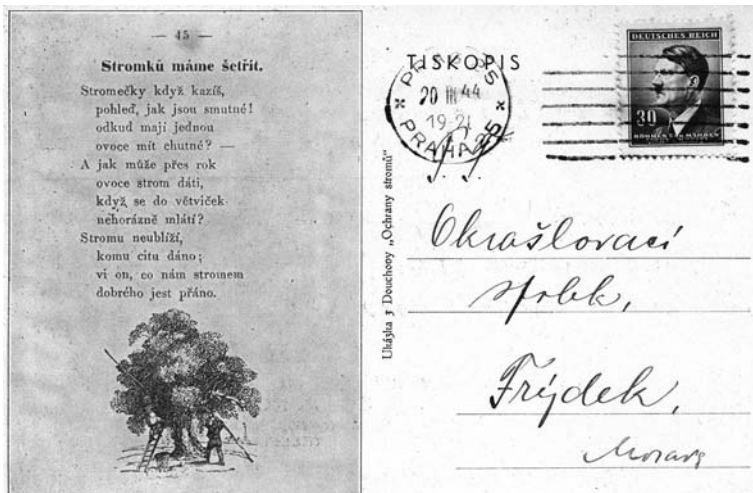 — 45 —
Stromků máme šetřit.
Stromečky když kazíš,
pohleď, jak jsou smutné!
odkud mají jednou
ovoce mít chutné? —
A jak může přes rok
ovoce strom dáti,
když se do větviček
nehorázně mlátí?
Stromu neublíží,
komu citu dáno;
ví on, co nám stromem
dobrého jest přáno.
Ukázka z Douchovy „Ochrany stromů“
TISKOPIS
20 III 44
19-21
PRAHA 25
DEUTSCHES REICH
30
BÖHMEN u. MÄHREN
Okrašlovací
spolek,
Frýdek,
Morava